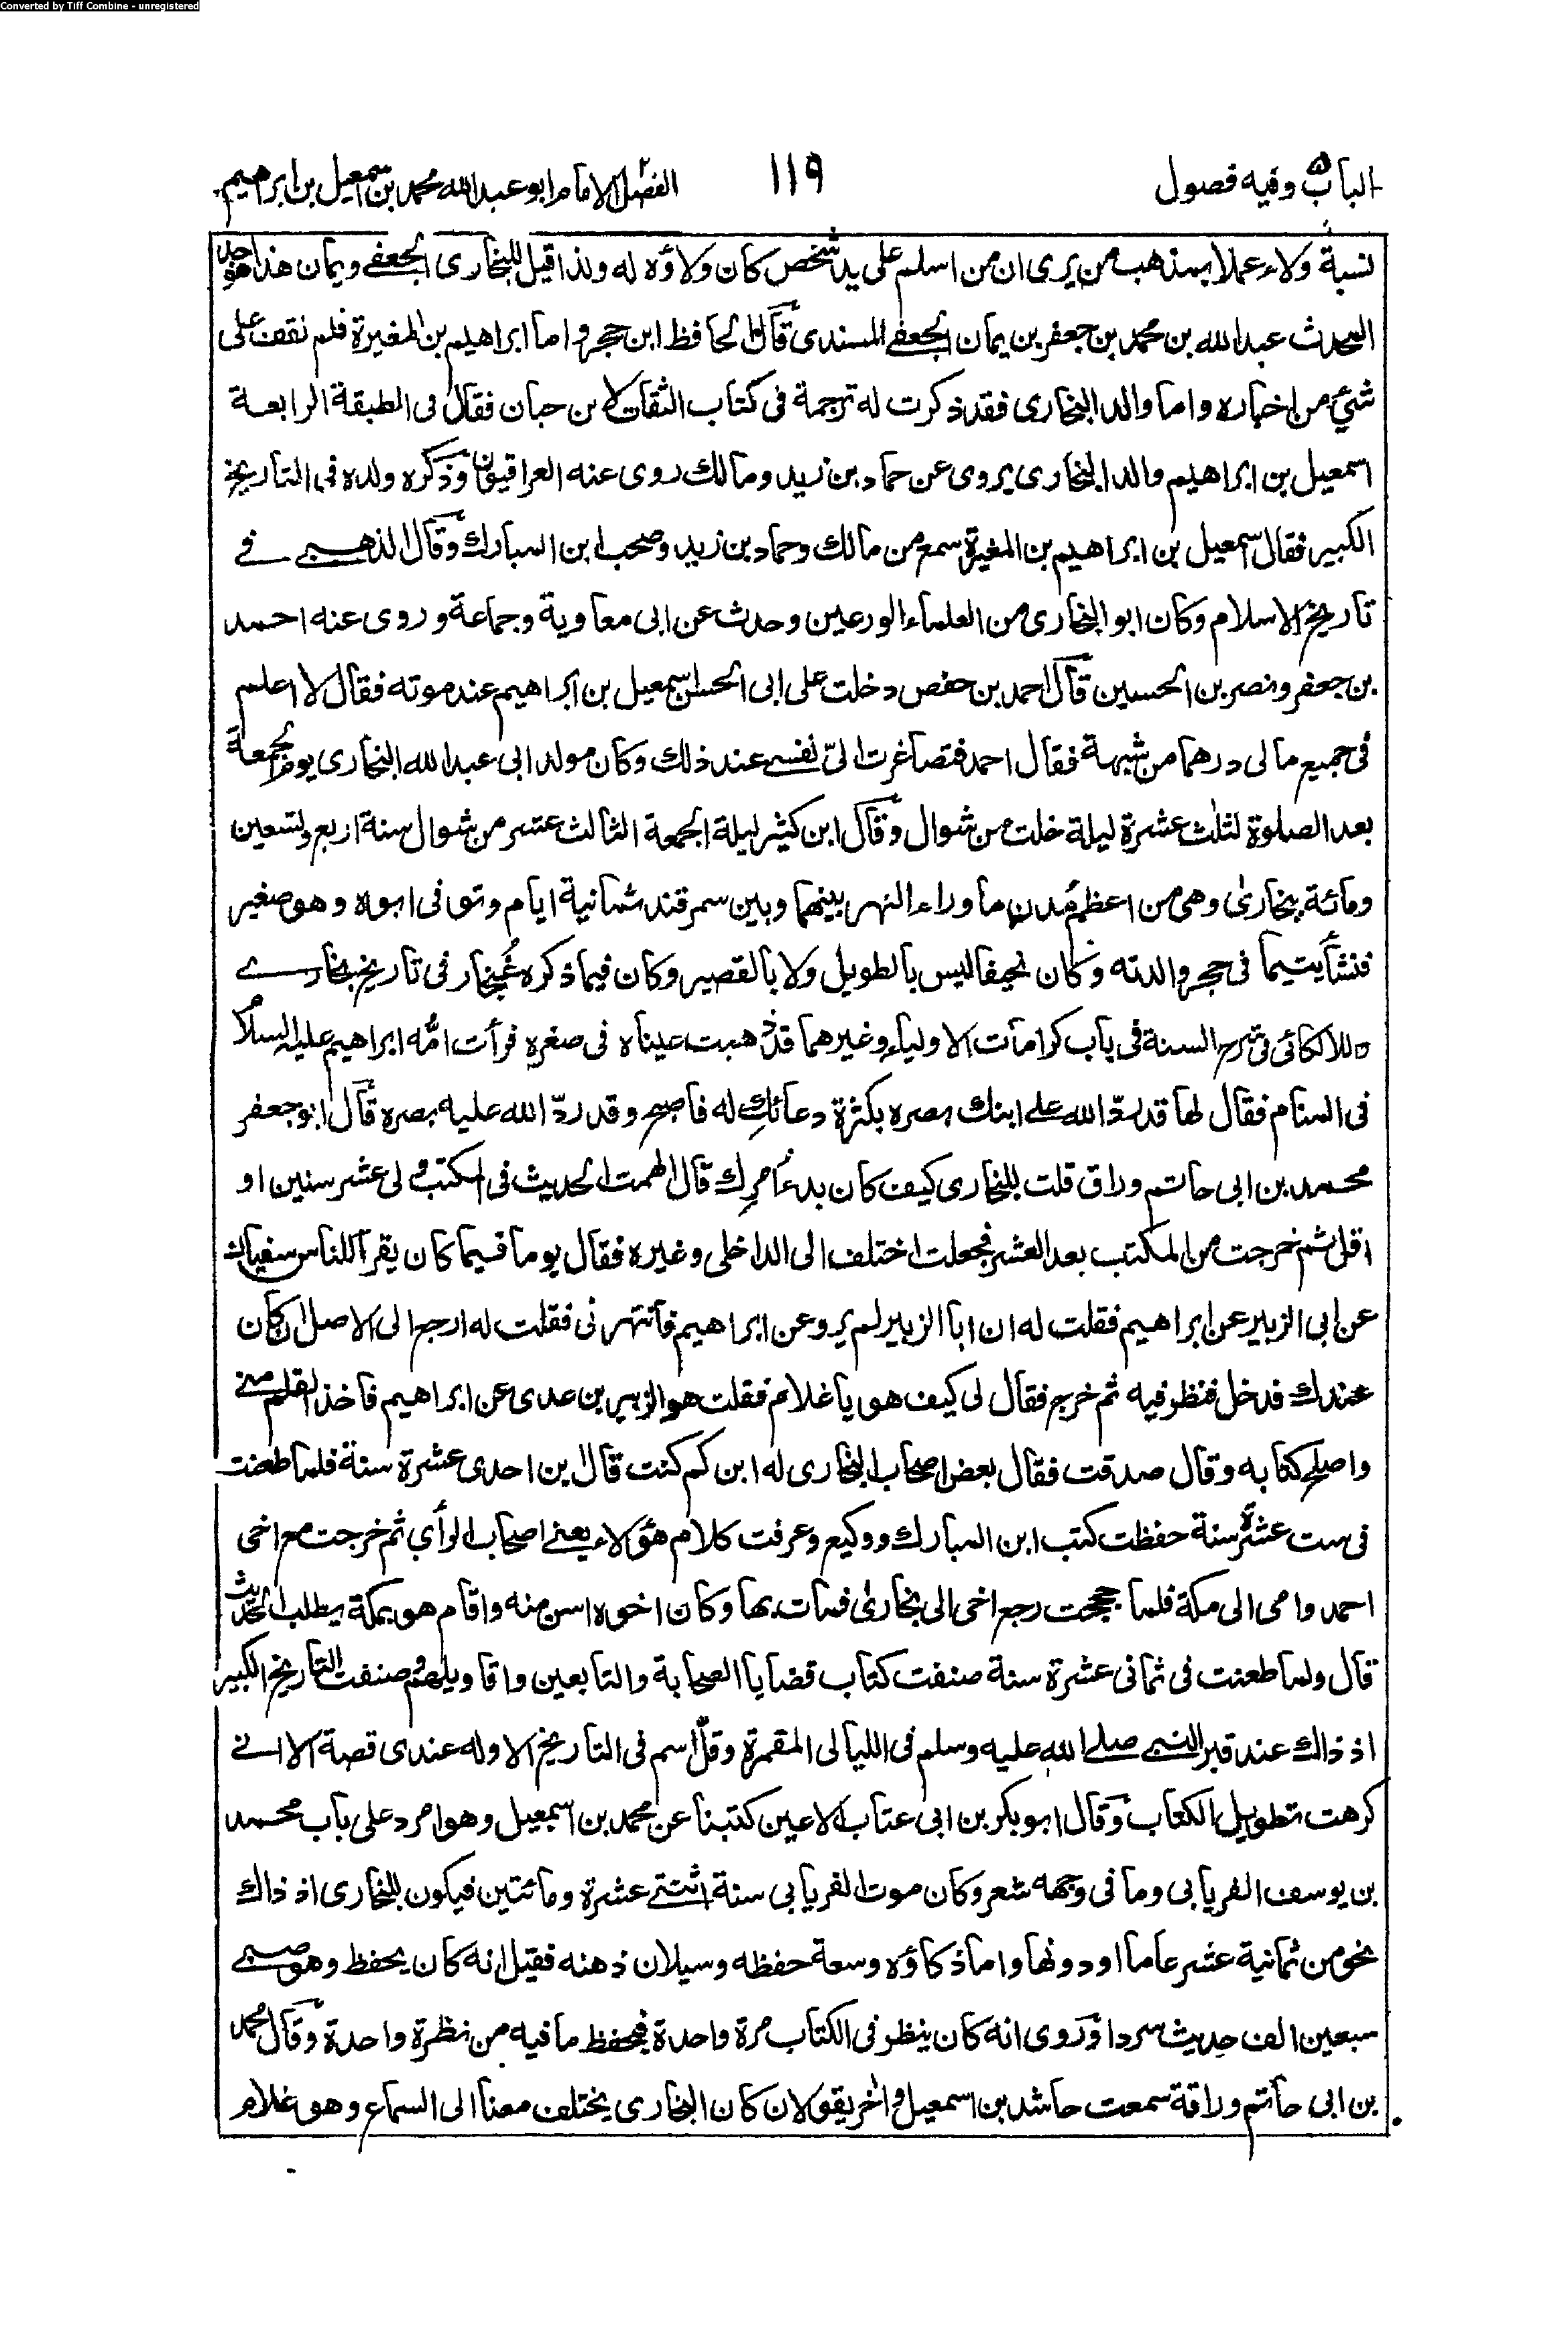 Converted by Tiff Combine - unregistered
الباب ٥ وفيه فصول
١١٩
الفصل الامام ابو عبد الله محمد بن اسمعيل بن ابراهيم
نسبة ولاء عملا بمذهب من يرى ان من اسلم على يد شخص كان ولاؤه له ولذا قيل للبخارى الجعفى ويمان هذا هو جد
المحدث عبد الله بن محمد بن جعفر بن يمان الجعفى المسندى قال الحافظ ابن حجر واما ابراهيم بن المغيرة فلم نقف على
شئ من اخباره واما والد البخارى فقد ذكرت له ترجمة فى كتاب الثقات لابن حبان فقال فى الطبقة الرابعة
اسمعيل بن ابراهيم والد البخارى يروى عن حماد بن زيد ومالك روى عنه العراقيون وذكره ولده فى التاريخ
الكبير فقال اسمعيل بن ابراهيم بن المغيرة سمع من مالك وحماد بن زيد وصحب ابن المبارك وقال الذهبى فى
تاريخ الاسلام وكان ابو البخارى من العلماء الورعين وحدث عن ابى معاوية وجماعة وروى عنه احمد
بن جعفر ونصر بن الحسين قال احمد بن حفص دخلت على ابى الحسن اسمعيل بن ابراهيم عند موته فقال لا اعلم
فى جميع مالى درهما من شبهة فقال احمد فتصاغرت الىّ نفسى عند ذلك وكان مولد ابى عبد الله البخارى يوم الجمعة
بعد الصلوة لثلث عشرة ليلة خلت من شوال وقال ابن كثير ليلة الجمعة الثالث عشر من شوال سنة اربع وتسعين
ومائة ببخارىٰ وهى من اعظم مُدن ماوراء النهر بينهما وبين سمرقند ثمانية ايام وتوفى ابوه وهو صغير
فنشأ يتيما فى حجر والدته وكان نحيفا ليس بالطويل ولا بالقصير وكان فيما ذكره غُنجار فى تاريخ بخارى
واللالكائى فى شرح السنة فى باب كرامات الاولياء وغيرهما قد ذهبت عيناه فى صغره فرأت امُّه ابراهيم عليه السلام
فى المنام فقال لها قد ردّ الله على ابنك بصره بكثرة دعائكِ له فاصبح وقد ردّ الله عليه بصره قال ابو جعفر
محمد بن ابى حاتم وراق قلت للبخارى كيف كان بدءُ امرِك قال الهمت الحديث فى المكتب ولى عشر سنين او
اقل ثم خرجت من المكتب بعد العشر فجعلت اختلف الى الداخلى وغيره فقال يوما فيما كان يقرأ للناس سفيان
عن ابى الزبير عن ابراهيم فقلت له ان ابا الزبير لم يرو عن ابراهيم فانتهرنى فقلت له ارجع الى الاصل ان كان
عندك فدخل فنظر فيه ثم خرج فقال لى كيف هو يا غلام فقلت هو الزبير بن عدى عن ابراهيم فاخذ القلم منى
واصلح كتابه وقال صدقت فقال بعض اصحاب البخارى له ابن كم كنت قال ابن احدى عشرة سنة فلما طعنت
فى ست عشرة سنة حفظت كتب ابن المبارك ووكيع وعرفت كلام هؤلاء يعنى اصحاب الرأي ثم خرجت مع اخى
احمد وامى الى مكة فلما حججت رجع اخى الى بخارىٰ فمات بها وكان اخوه اسن منه واقام هو بمكة يطلب الحديث
قال ولما طعنت فى ثمانى عشرة سنة صنفت كتاب قضايا الصحابة والتابعين واقاويلهم وصنفت التاريخ الكبير
اذ ذاك عند قبر النبى صلى الله عليه وسلم فى الليالى المقمرة وقلّ اسم فى التاريخ الا وله عندى قصة الا انى
كرهت تطويل الكتاب وقال ابو بكر بن ابى عتاب الاعين كتبنا عن محمد بن اسمعيل وهو امرد على باب محمد
بن يوسف الفريابى وما فى وجهه شعر وكان موت الفريابى سنة اثنتى عشرة ومائتين فيكون للبخارى اذ ذاك
نحو من ثمانية عشر عاما او دونها واما ذكاؤه وسعة حفظه وسيلان ذهنه فقيل انه كان يحفظ وهو صبى
سبعين الف حديث سردا وروى انه كان ينظر فى الكتاب مرة واحدة فيحفظ ما فيه من نظرة واحدة وقال محمد
بن ابى حاتم وراقة سمعت حاشد بن اسمعيل واٰخر يقولان كان البخارى يختلف معنا الى السماع وهو غلام